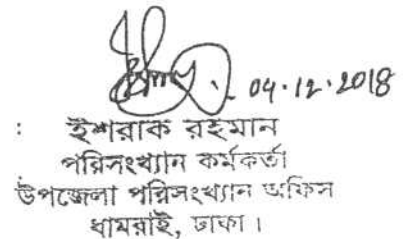 04.12.2018
: ইশরাক রহমান
পরিসংখ্যান কর্মকর্তা
উপজেলা পরিসংখ্যান অফিস
ধামরাই, ঢাকা।